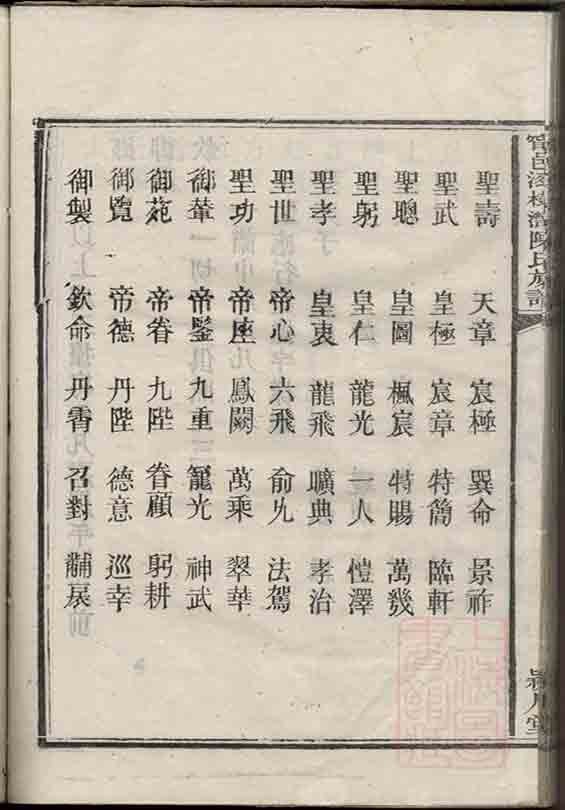 陳氏族譜
潁川堂
聖壽 天章 宸極 巽命 景祚
聖武 皇極 宸章 特簡 臨軒
聖聰 皇圖 楓宸 特賜 萬幾
聖躬 皇仁 龍光 一人 愷澤
聖孝 皇衷 龍飛 曠典 孝治
聖世 帝心 六飛 俞允 法駕
聖功 帝座 鳳闕 萬乘 翠華
御輦 帝鑒 九重 寵光 神武
御苑 帝眷 九陛 眷顧 躬耕
御覽 帝德 丹陛 德意 巡幸
御製 欽命 丹霄 召對 黼扆
上海圖
書館藏